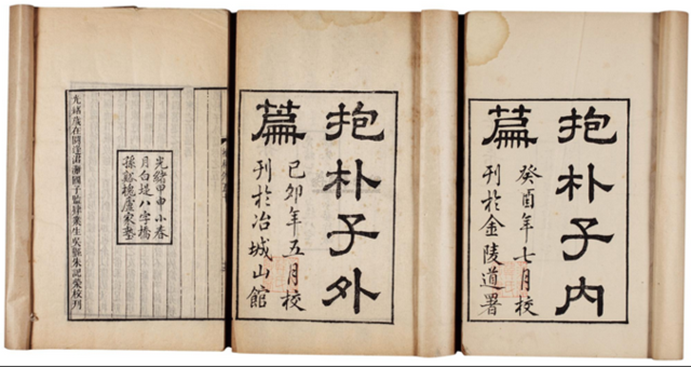 抱朴子内
篇
癸酉年七月校
刊於金陵道署
抱朴子外
篇
己卯年五月校
刊於冶城山館
光緒甲申小春
月白堤八字橋
孫谿槐廬家塾
光緒歲在閼逢涒灘國子監肄業生吳縣朱記榮校刊